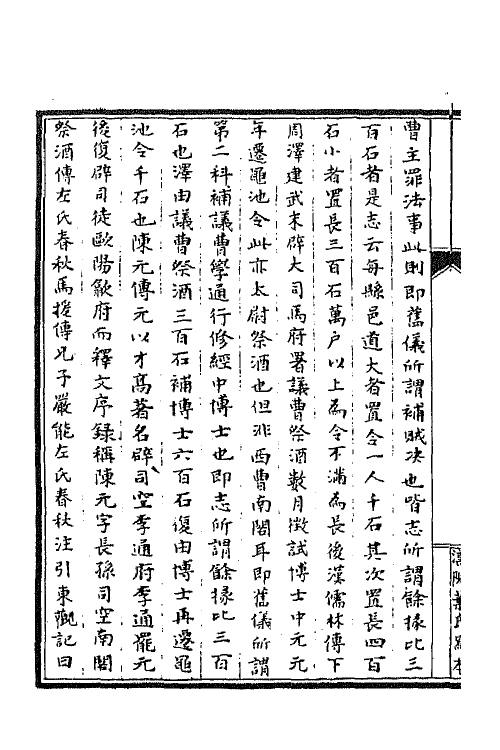 曹主罪法事此則即舊儀所謂補賊决也皆志所謂餘掾比三
百石者是志云每縣邑道大者置令一人千石其次置長四百
石小者置長三百石萬户以上為令不滿為長後漢儒林傳下
周澤建武末辟大司馬府署議曹祭酒數月徵試博士中元元
年遷黽池令此亦太尉祭酒也但非西曹南閤耳即舊儀所謂
第二科補議曹學通行修經中博士也即志所謂餘掾比三百
石也澤由議曹祭酒三百石補博士六百石復由博士再遷黽
池令千石也陳元傳元以才髙著名辟司空李通府李通罷元
後復辟司徒歐陽歙府而釋文序録稱陳元字長孫司空南閤
祭酒傳左氏春秋馬援傳兄子嚴能左氏春秋注引東觀記曰